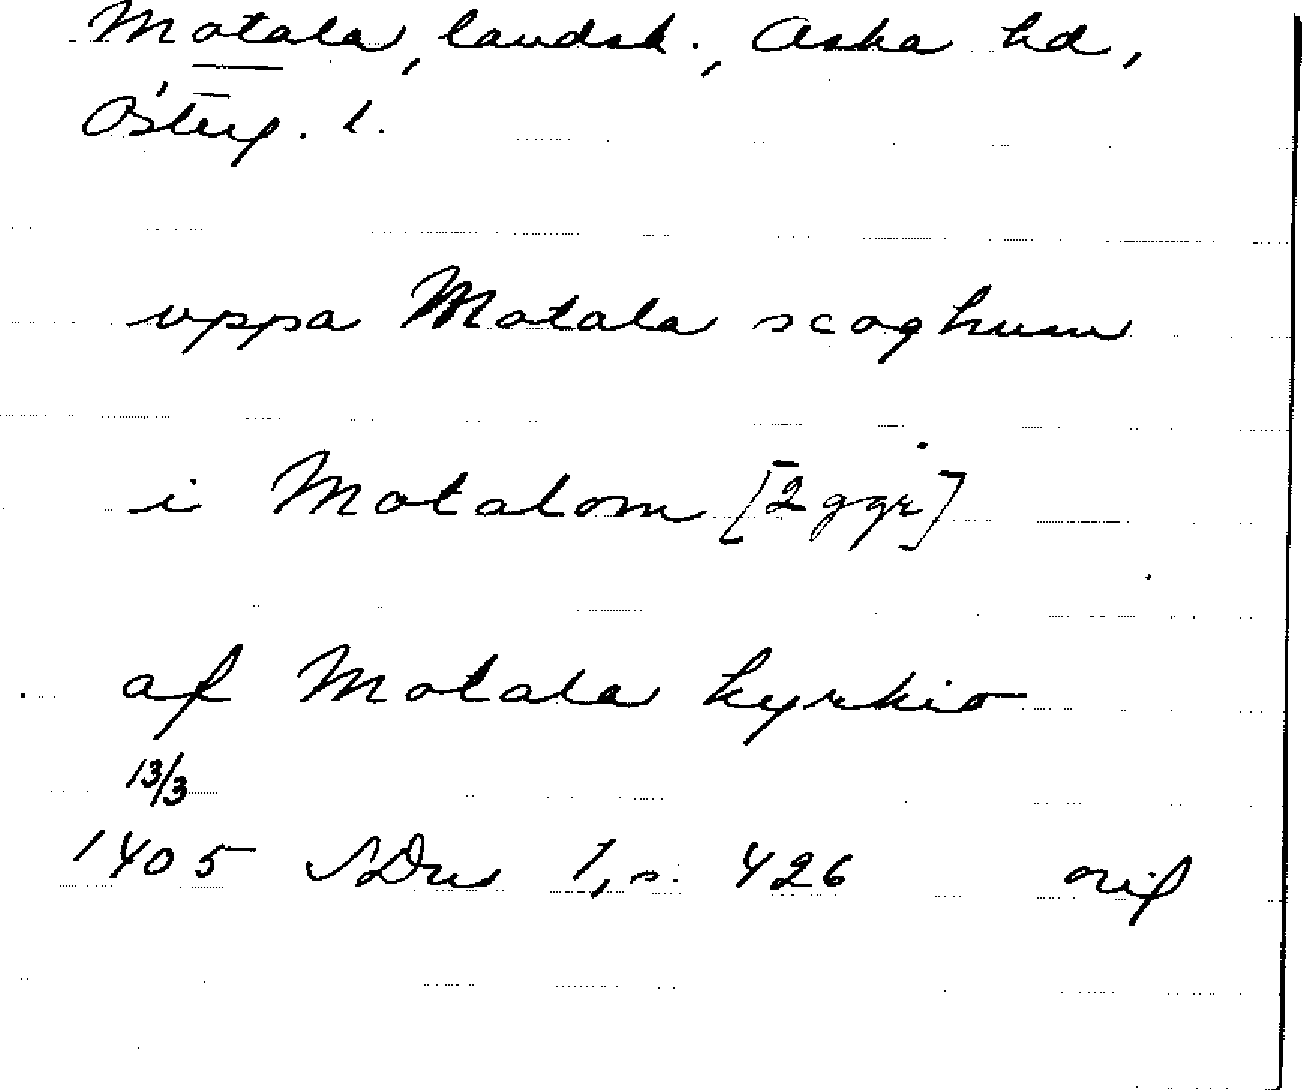 Motala, landsk., Aska hd,
Österg. l.
uppa Motala scoghum
i Motalom [2 ggr]
af Motala kyrkio
13/3
1405 SDns 1, s. 426 orig